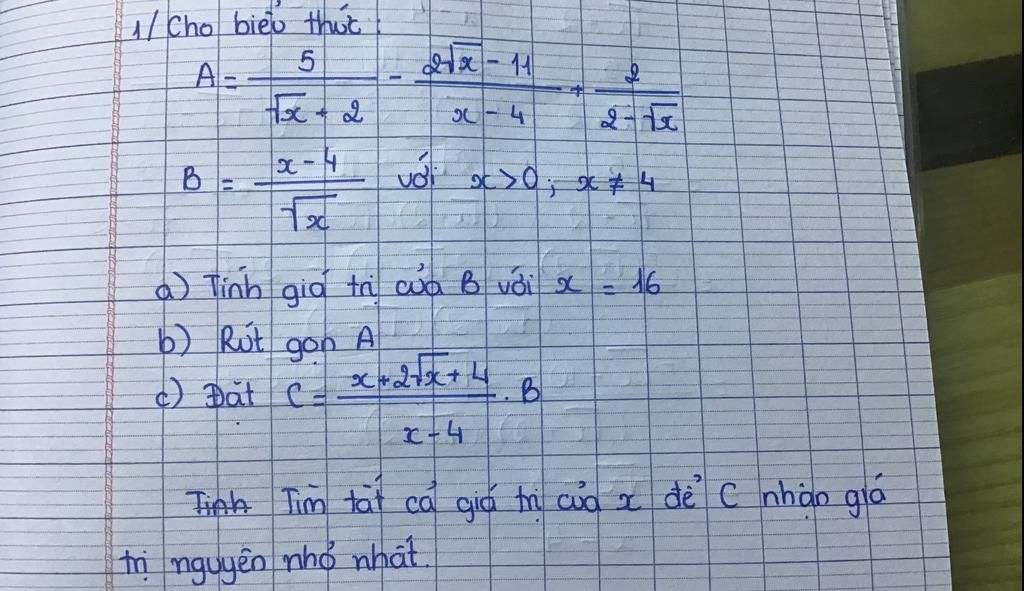 1/ Cho biểu thức:
A = 5/(√x + 2) - (2√x - 11)/(x - 4) + 2/(2 - √x)
B = (x - 4)/√x với x > 0; x ≠ 4
a) Tính giá trị của B với x = 16
b) Rút gọn A
c) Đặt C = (x + 2√x + 4)/(x - 4) . B
Tính Tìm tất cả giá trị của x để C nhận giá
trị nguyên nhỏ nhất.